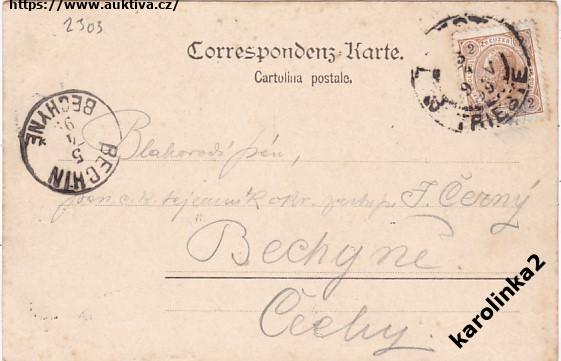 https://www.auktiva.cz/
2303
Correspondenz-Karte.
Cartolina postale.
TRIESTE
2 KREUZER 2
2
BECHYNĚ
5
BECHIN
Blahorodí pán,
pan c. k. tajemník okr. J. Černý
Bechyně.
Čechy.
karolinka2